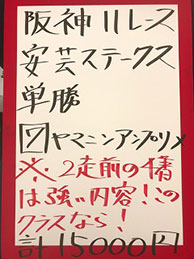 阪神11レース
安芸ステークス
単勝
7ヤマニンアンプリメ
※2走前の1着
は強い内容!この
クラスなら!
計15000円